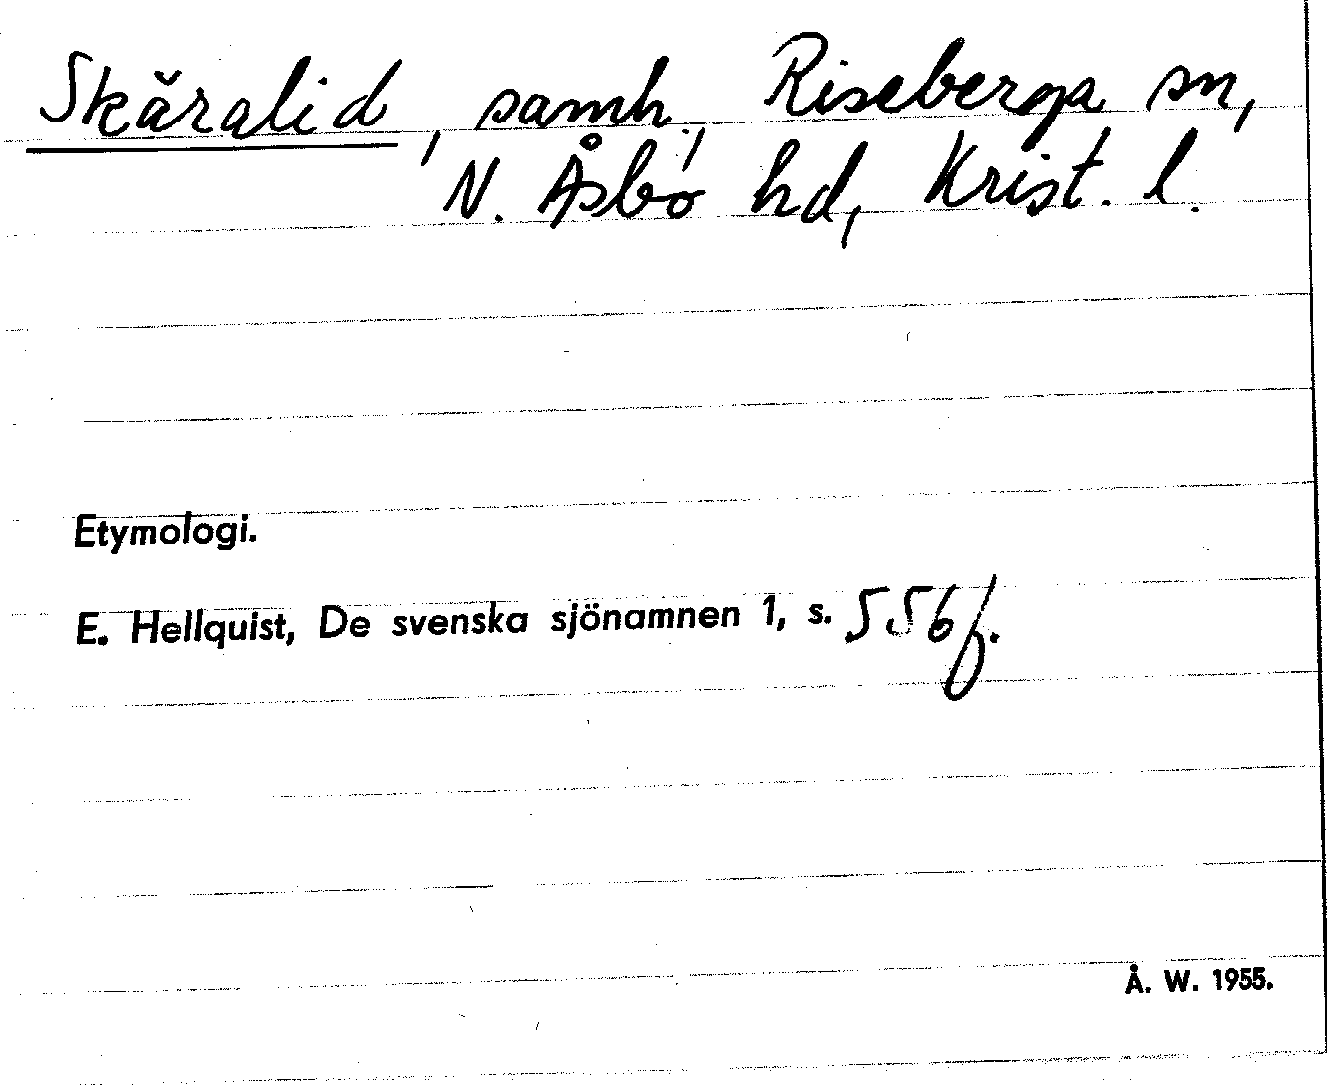 Skäralid, samh., Riseberga sn,
N. Åsbo hd, Krist. l.
Etymologi.
E. Hellquist, De svenska sjönamnen 1, s. 556f.
Å. W. 1955.